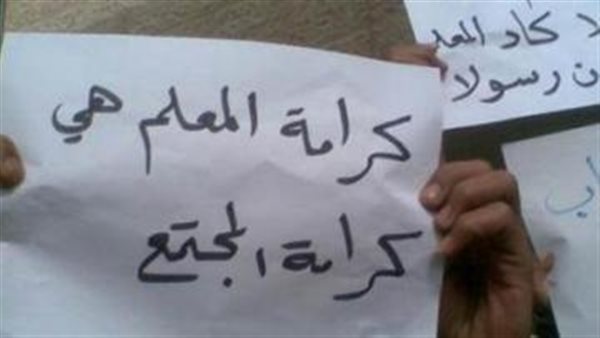 كرامة المعلم هي
كرامة المجتمع
لا كاد المعد
ن رسولا